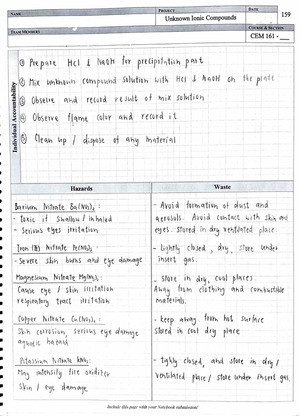 NAME
PROJECT
Unknown Ionic Compounds
DATE
159
TEAM MEMBERS
COURSE & SECTION
CEM 161 - ___
Individual Accountability
① Prepare HCl & NaOH for precipitation part
② Mix unknown compound solution with HCl & NaOH on the plate
③ Observe and record result of mix solution
④ Observe flame color and record it
⑤ Clean up / dispose of any material
Hazards
Waste
Barium Nitrate Ba(NO3)2 :
- toxic if swallow / inhaled
- Serious eyes irritation
- Avoid formation of dust and
aerosols. Avoid contact with skin and
eyes. stored in dry ventilated place.
Iron (III) Nitrate Fe(NO3)3 :
- Severe skin burns and eye damage
- tightly closed, dry, store under
insert gas.
Magnesium Nitrate Mg(NO3)2 :
Cause eye / skin irritation
respiratory tract irritation
- Store in dry, cool places.
Away from clothing and combustible
materials.
Copper Nitrate Cu(NO3)2 :
Skin corrosion, serious eye damage
aquatic hazard
- keep away from hot surface
stored in cool dry place
Potassium Nitrate KNO3 :
May intensify fire oxidizer
skin / eye damage
- tighly closed, and store in dry /
ventilated place / store under insert gas.
Include this page with your Notebook submission!